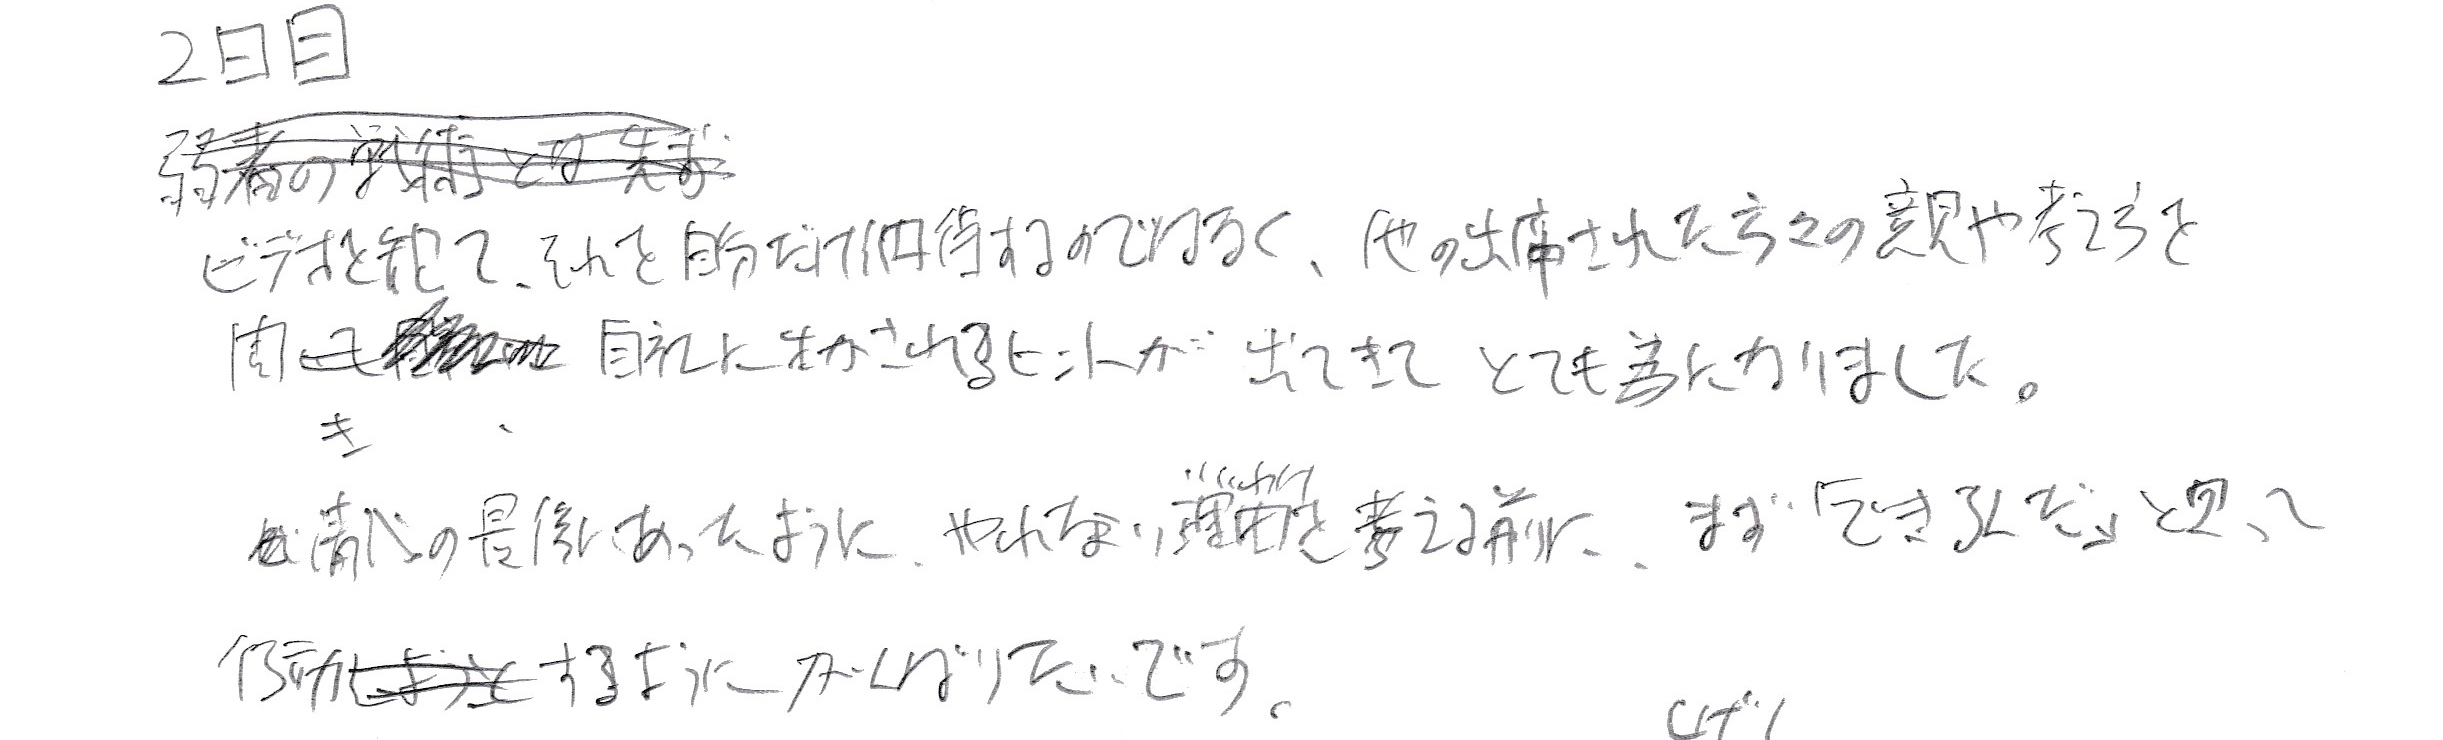 2日目
弱者の戦術とは 先ず
ビデオを観て、それを自分だけ納得するのではなく、他の出席された方々の意見や考えを
聞き 自社に生かされるヒントが出てきて とても為になりました。
の最後にあったように、やれない理由を考える前に、まず「できるんだ」と思って
行動しようと するように がんばりたいです。